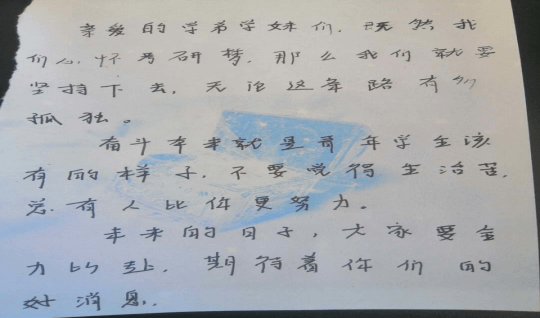 亲爱的学弟学妹们,既然我
们心怀考研梦,那么我们就要
坚持下去,无论这条路有多
孤独。
奋斗本来就是青年学生该
有的样子,不要觉得生活苦,
总有人比你更努力。
未来的日子,大家要全
力以赴,期待着你们的
好消息.